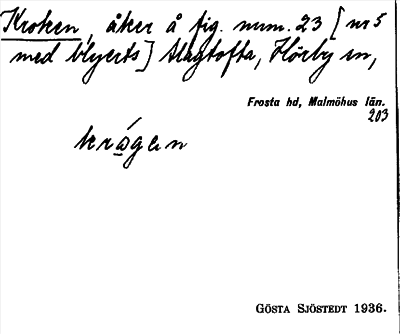 Kroken, åker å fig. num. 23 [nr 5
med blyerts] Slagtofta, Hörby sn,
Frosta hd, Malmöhus län.
203
krógen
GÖSTA SJÖSTEDT 1936.